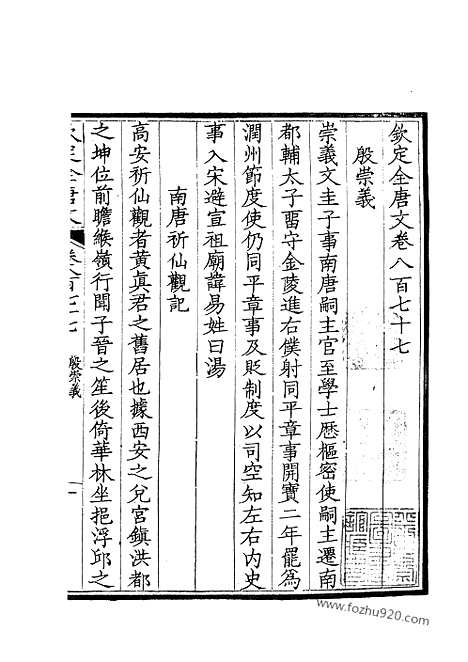 欽定全唐文卷八百七十七
殷崇義
崇義文圭子事南唐嗣主官至學士歷樞密使嗣主遷南
都輔太子畱守金陵進右僕射同平章事開寶二年罷為
潤州節度使仍同平章事及貶制度以司空知左右內史
事入宋避宣祖廟諱易姓曰湯
南唐祈仙觀記
高安祈仙觀者黃眞君之舊居也據西安之兌宮鎮洪都
之坤位前瞻緱嶺行聞子晉之笙後倚華林坐挹浮邱之
欽定全唐文 卷八百七十七 殷崇義 一
www.fozhu920.com